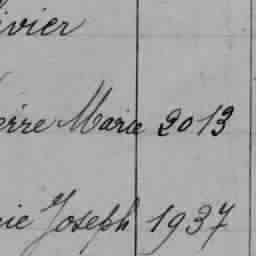 ivier
erre Marie 2013
ie Joseph 1937